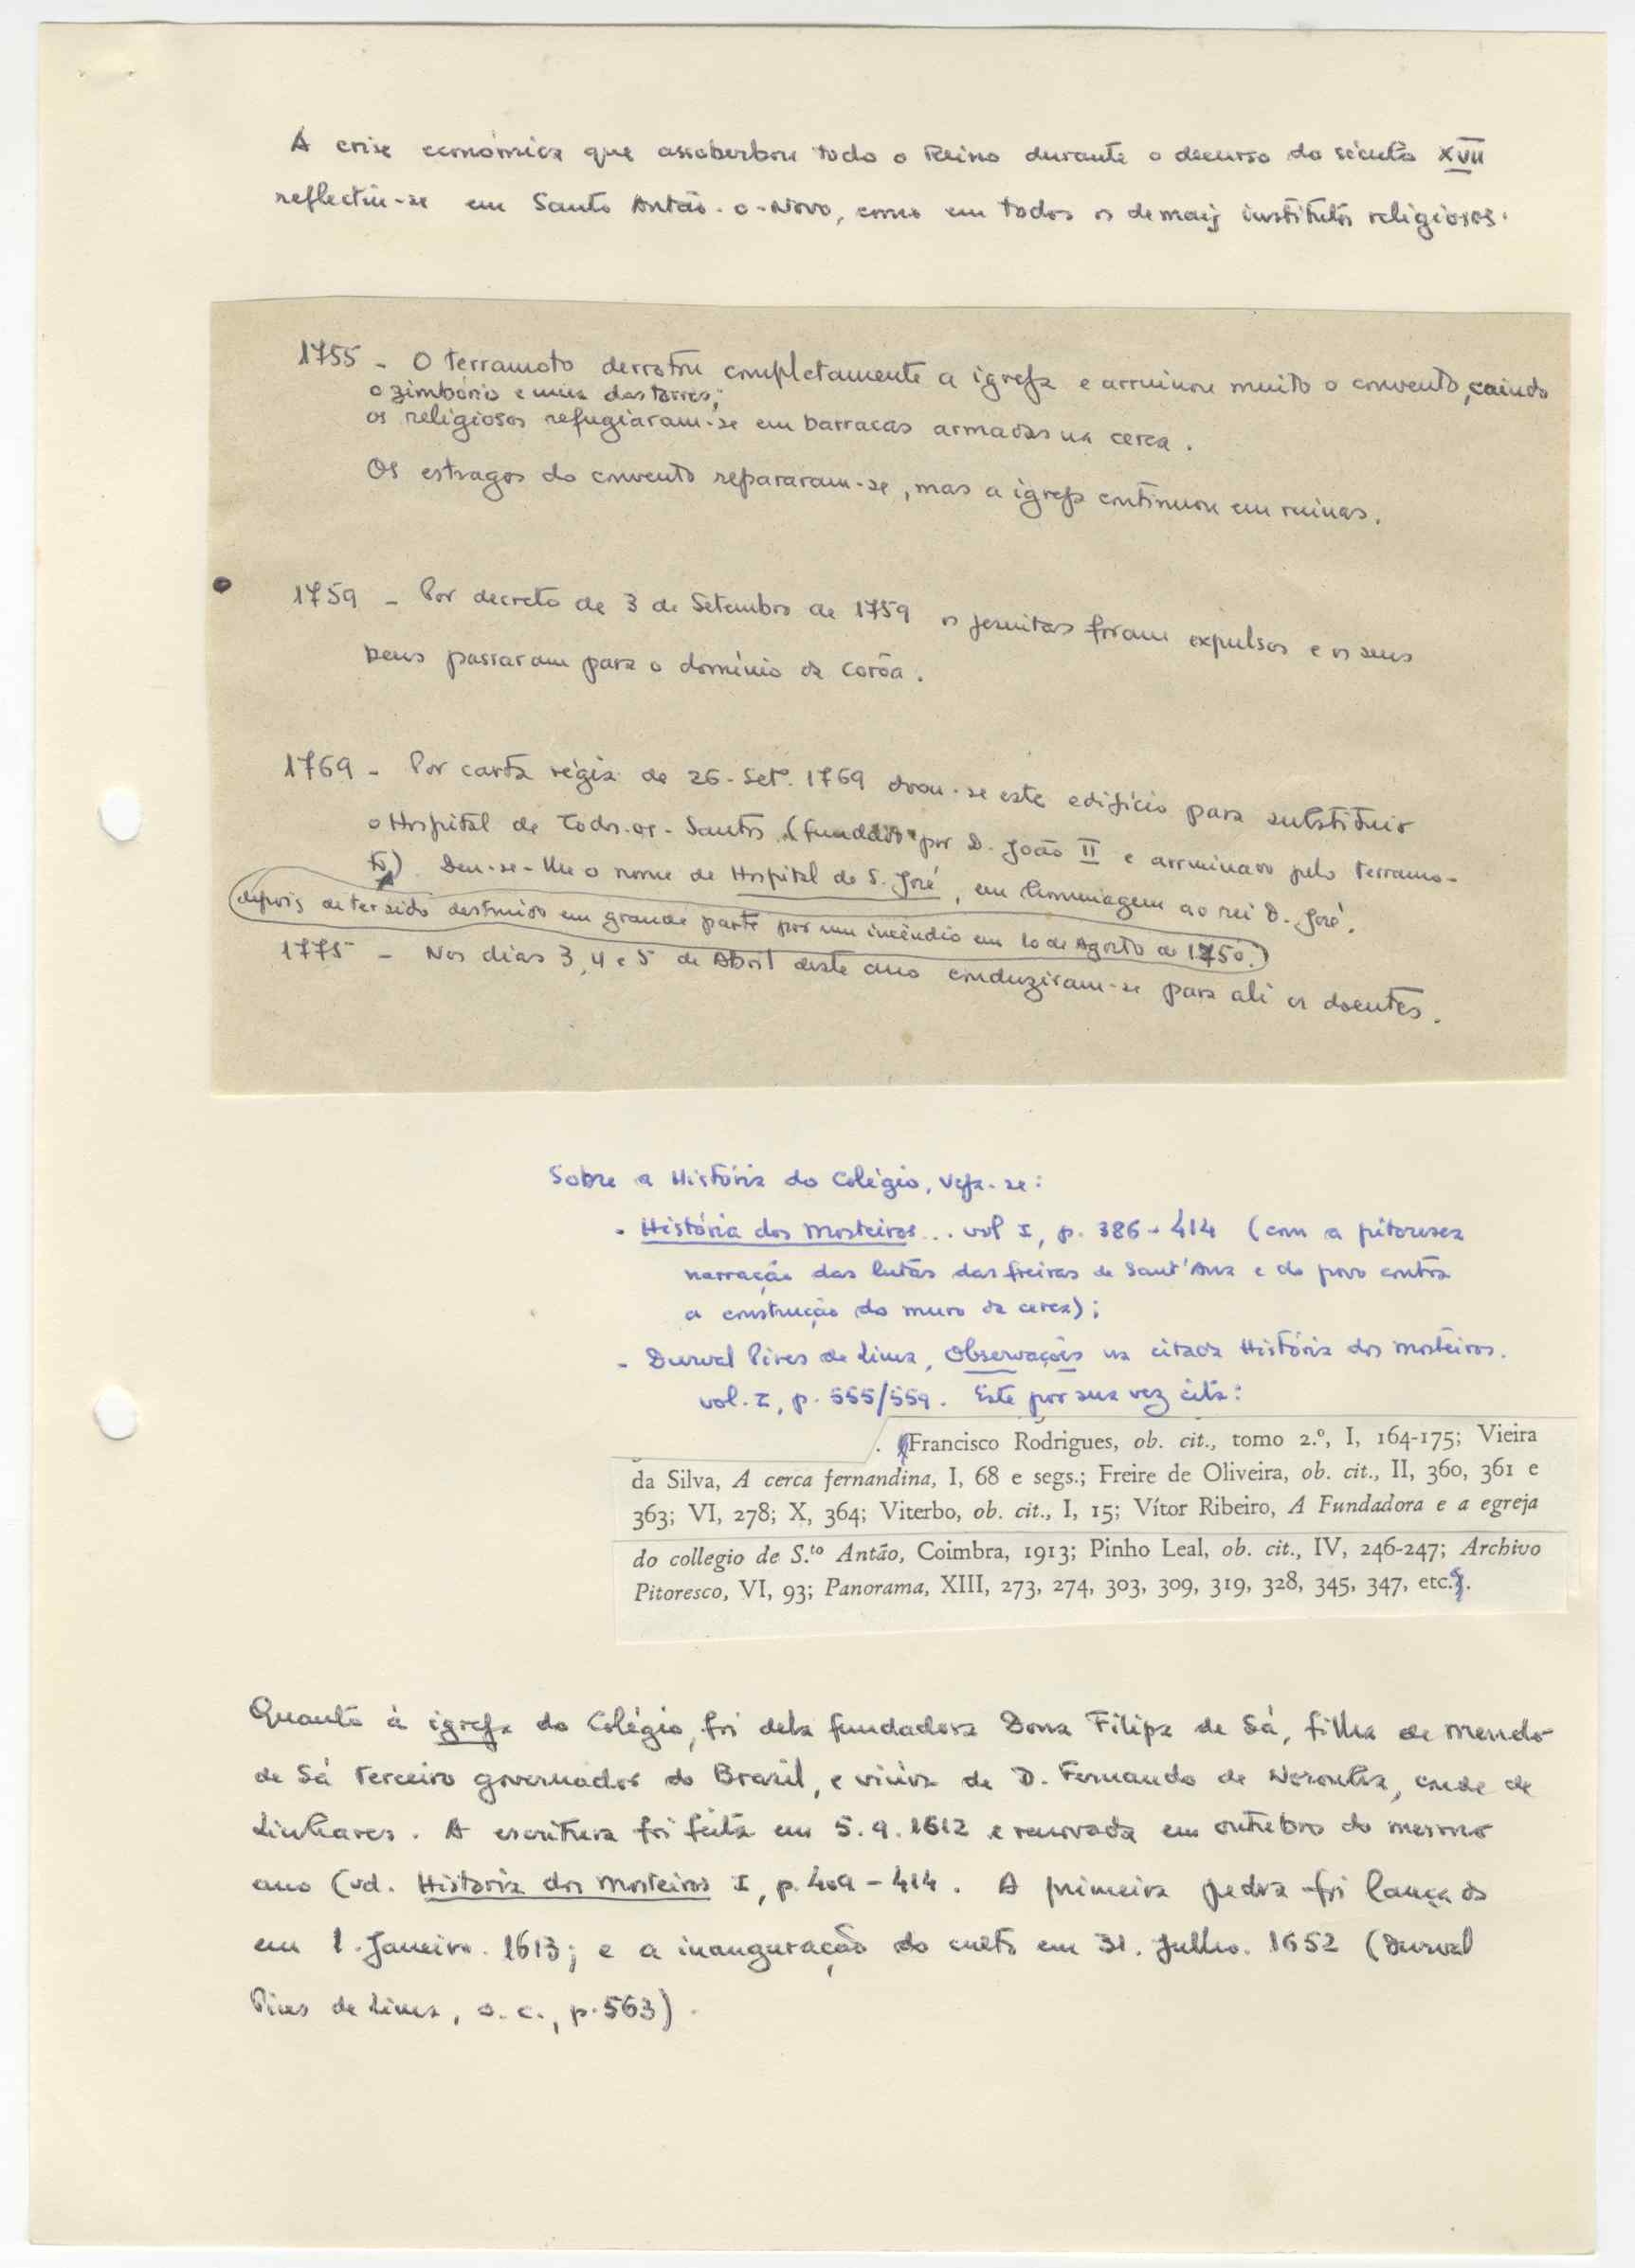 A crise económica que assoberbou todo o Reino durante o decurso do século XVII
reflectiu-se em Santo Antão-o-Novo, como em todos os demais institutos religiosos.
1755 - O terramoto derrotou completamente a igreja e arruinou muito o convento, caindo
o zimbório e uma das torres;
os religiosos refugiaram-se em barracas armadas na cerca.
Os estragos do convento repararam-se, mas a igreja continuou em ruinas.
1759 - Por decreto de 3 de Setembro de 1759 os jesuitas foram expulsos e os seus
bens passaram para o domínio da Corôa.
1769 - Por carta régia de 26-Setº. 1769 doou-se este edifício para substituir
o Hospital de Todos-os-Santos (fundado por D. João II e arruinado pelo terramo-
to). Deu-se-lhe o nome de Hospital de S. José, em homenagem ao rei D. José.
depois de ter sido destruido em grande parte por um incêndio em 10 de Agosto de 1750.)
1775 - Nos dias 3, 4 e 5 de Abril deste ano conduziram-se para ali os doentes.
Sobre a História do Colégio, veja-se:
- História dos Mosteiros... vol I, p. 386-414 (com a pitoresca
narração das lutas das freiras de Sant'Ana e do povo contra
a construção do muro da cerca);
- Durval Pires de Lima, Observações na citada História dos Mosteiros.
vol. I, p. 555/559. Este por sua vez cita:
. Francisco Rodrigues, ob. cit., tomo 2.º, I, 164-175; Vieira
da Silva, A cerca fernandina, I, 68 e segs.; Freire de Oliveira, ob. cit., II, 360, 361 e
363; VI, 278; X, 364; Viterbo, ob. cit., I, 15; Vítor Ribeiro, A Fundadora e a egreja
do collegio de S.to Antão, Coimbra, 1913; Pinho Leal, ob. cit., IV, 246-247; Archivo
Pitoresco, VI, 93; Panorama, XIII, 273, 274, 303, 309, 319, 328, 345, 347, etc.
Quanto à igreja do Colégio, foi dela fundadora Dona Filipa de Sá, filha de Mendo
de Sá terceiro governador do Brasil, e viúva de D. Fernando de Noronha, conde de
Linhares. A escritura foi feita em 5.9.1612 e renovada em outubro do mesmo
ano (vd. Historia dos Mosteiros I, p. 409-414. A primeira pedra foi lançada
em 1.Janeiro.1613; e a inauguração do culto em 31.Julho.1652 (Durval
Pires de Lima, o.c., p.563).